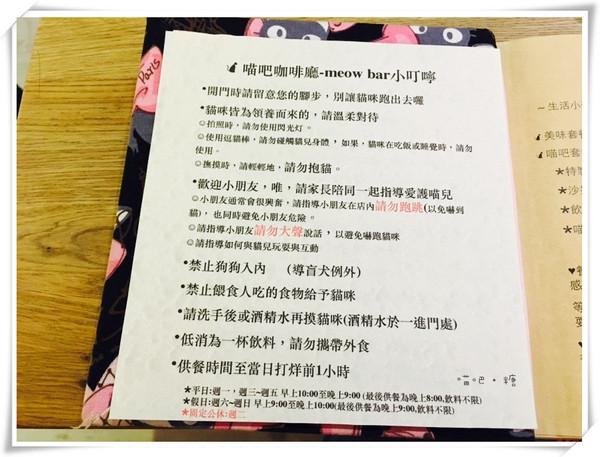 喵吧咖啡廳-meow bar小叮嚀
•開門時請留意您的腳步，別讓貓咪跑出去囉
•貓咪皆為領養而來的，請溫柔對待
☺拍照時，請勿使用閃光灯。
☺使用逗貓棒，請勿碰觸貓兒身體，如果，貓咪在吃飯或睡覺時，請勿
使用。
☺撫摸時，請輕輕地，請勿抱貓。
•歡迎小朋友，唯，請家長陪同一起指導愛護喵兒
☺小朋友通常會很興奮，請指導小朋友在店內請勿跑跳(以免嚇到
貓)，也同時避免小朋友危險。
☺請指導小朋友請勿大聲說話，以避免嚇跑貓咪
☺請指導如何與貓兒玩耍與互動
•禁止狗狗入內 (導盲犬例外)
•禁止餵食人吃的食物給予貓咪
•請洗手後或酒精水再摸貓咪(酒精水於一進門處)
•低消為一杯飲料，請勿攜帶外食
•供餐時間至當日打烊前1小時
喵吧•糖
★平日:週一，週三~週五 早上10:00至晚上9:00 (最後供餐為晚上8:00,飲料不限)
★假日:週六~週日 早上9:00至晚上10:00(最後供餐為晚上9:00,飲料不限)
★固定公休:週二
Paris
~生活小
美味套餐
喵吧套
★特製
★沙
★飲
★喵
感
等
要